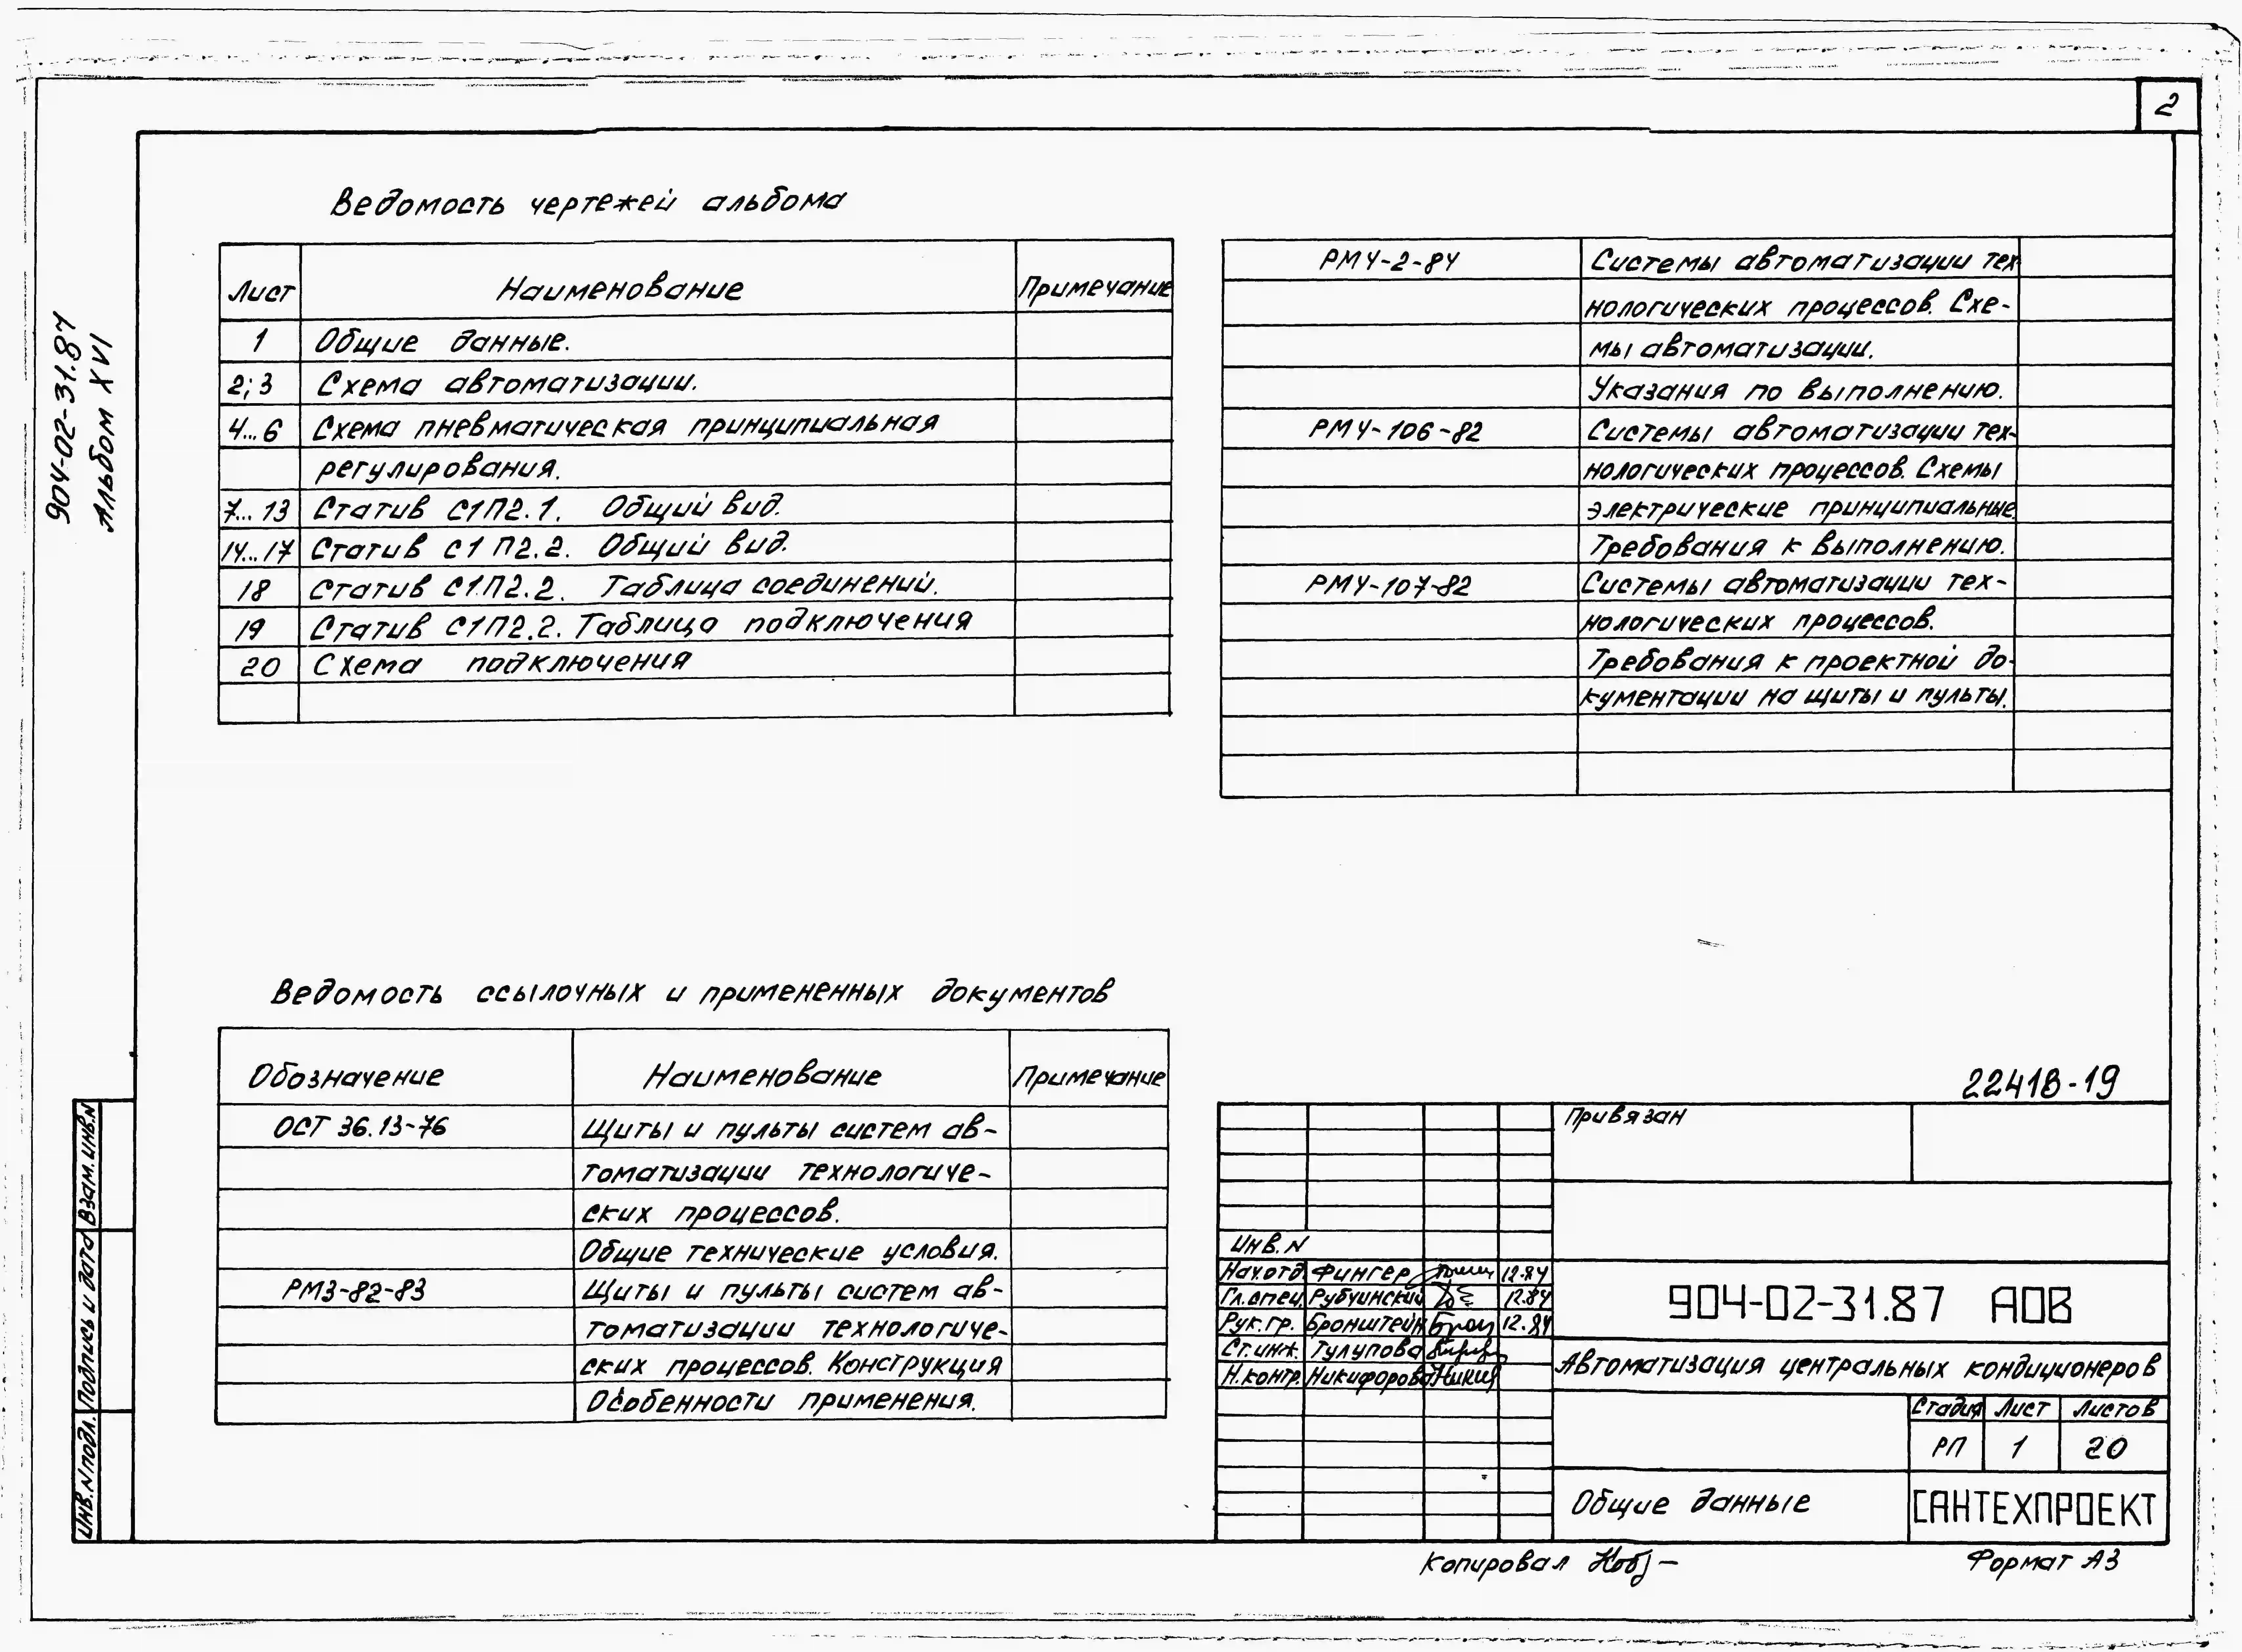 2
904-02-31.87
Альбом XVI
Ведомость чертежей альбома
Лист Наименование Примечание
1 Общие данные.
2;3 Схема автоматизации.
4...6 Схема пневматическая принципиальная
регулирования.
7...13 Статив С1П2.1. Общий вид.
14...17 Статив С1П2.2. Общий вид.
18 Статив С1П2.2. Таблица соединений.
19 Статив С1П2.2. Таблица подключения
20 Схема подключения
РМ4-2-84 Системы автоматизации тех-
нологических процессов. Схе-
мы автоматизации.
Указания по выполнению.
РМ4-106-82 Системы автоматизации тех-
нологических процессов. Схемы
электрические принципиальные.
Требования к выполнению.
РМ4-107-82 Системы автоматизации тех-
нологических процессов.
Требования к проектной до-
кументации на щиты и пульты.
Ведомость ссылочных и примененных документов
Обозначение Наименование Примечание
ОСТ 36.13-76 Щиты и пульты систем ав-
томатизации технологиче-
ских процессов.
Общие технические условия.
РМ3-82-83 Щиты и пульты систем ав-
томатизации технологиче-
ских процессов. Конструкция
Особенности применения.
22418-19
Привязан
Инв.N
Нач.отд. Фингер 12.84
Гл.спец. Рубчинский 12.84
Рук.гр. Бронштейн 12.84
Ст.инж. Тулупова
Н.контр. Никифорова
904-02-31.87 АОВ
Автоматизация центральных кондиционеров
Стадия Лист Листов
РП 1 20
Общие данные
САНТЕХПРОЕКТ
Копировал
Формат А3
Взам.инв.N
Подпись и дата
Инв.N подл.